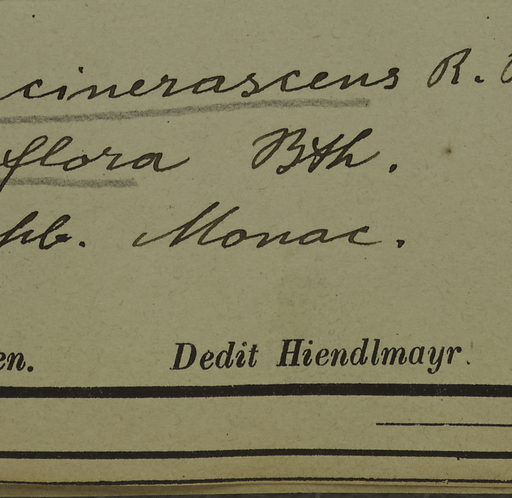 cinerascens R.
flora Bth.
hb. Monac.
en. Dedit Hiendlmayr.